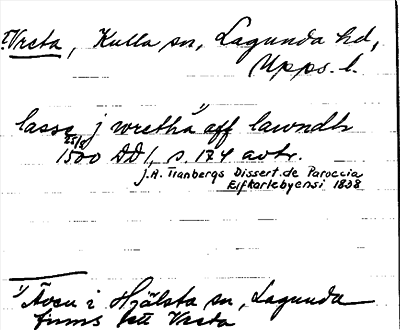 ?Vreta, Kulla sn, Lagunda hd,
Upps. l.
lasse j wretha 1) aff lawndh
25/8
1500 DD 1, s. 174 avtr.
J.A. Tranbergs Dissert. de Paroecia
Elfkarlebyensi 1828
1) Även i Hjälsta sn, Lagunda
finns ett Vreta